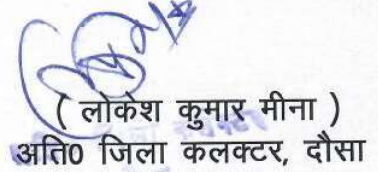 ( लोकेश कुमार मीना )
अति0 जिला कलक्टर, दौसा